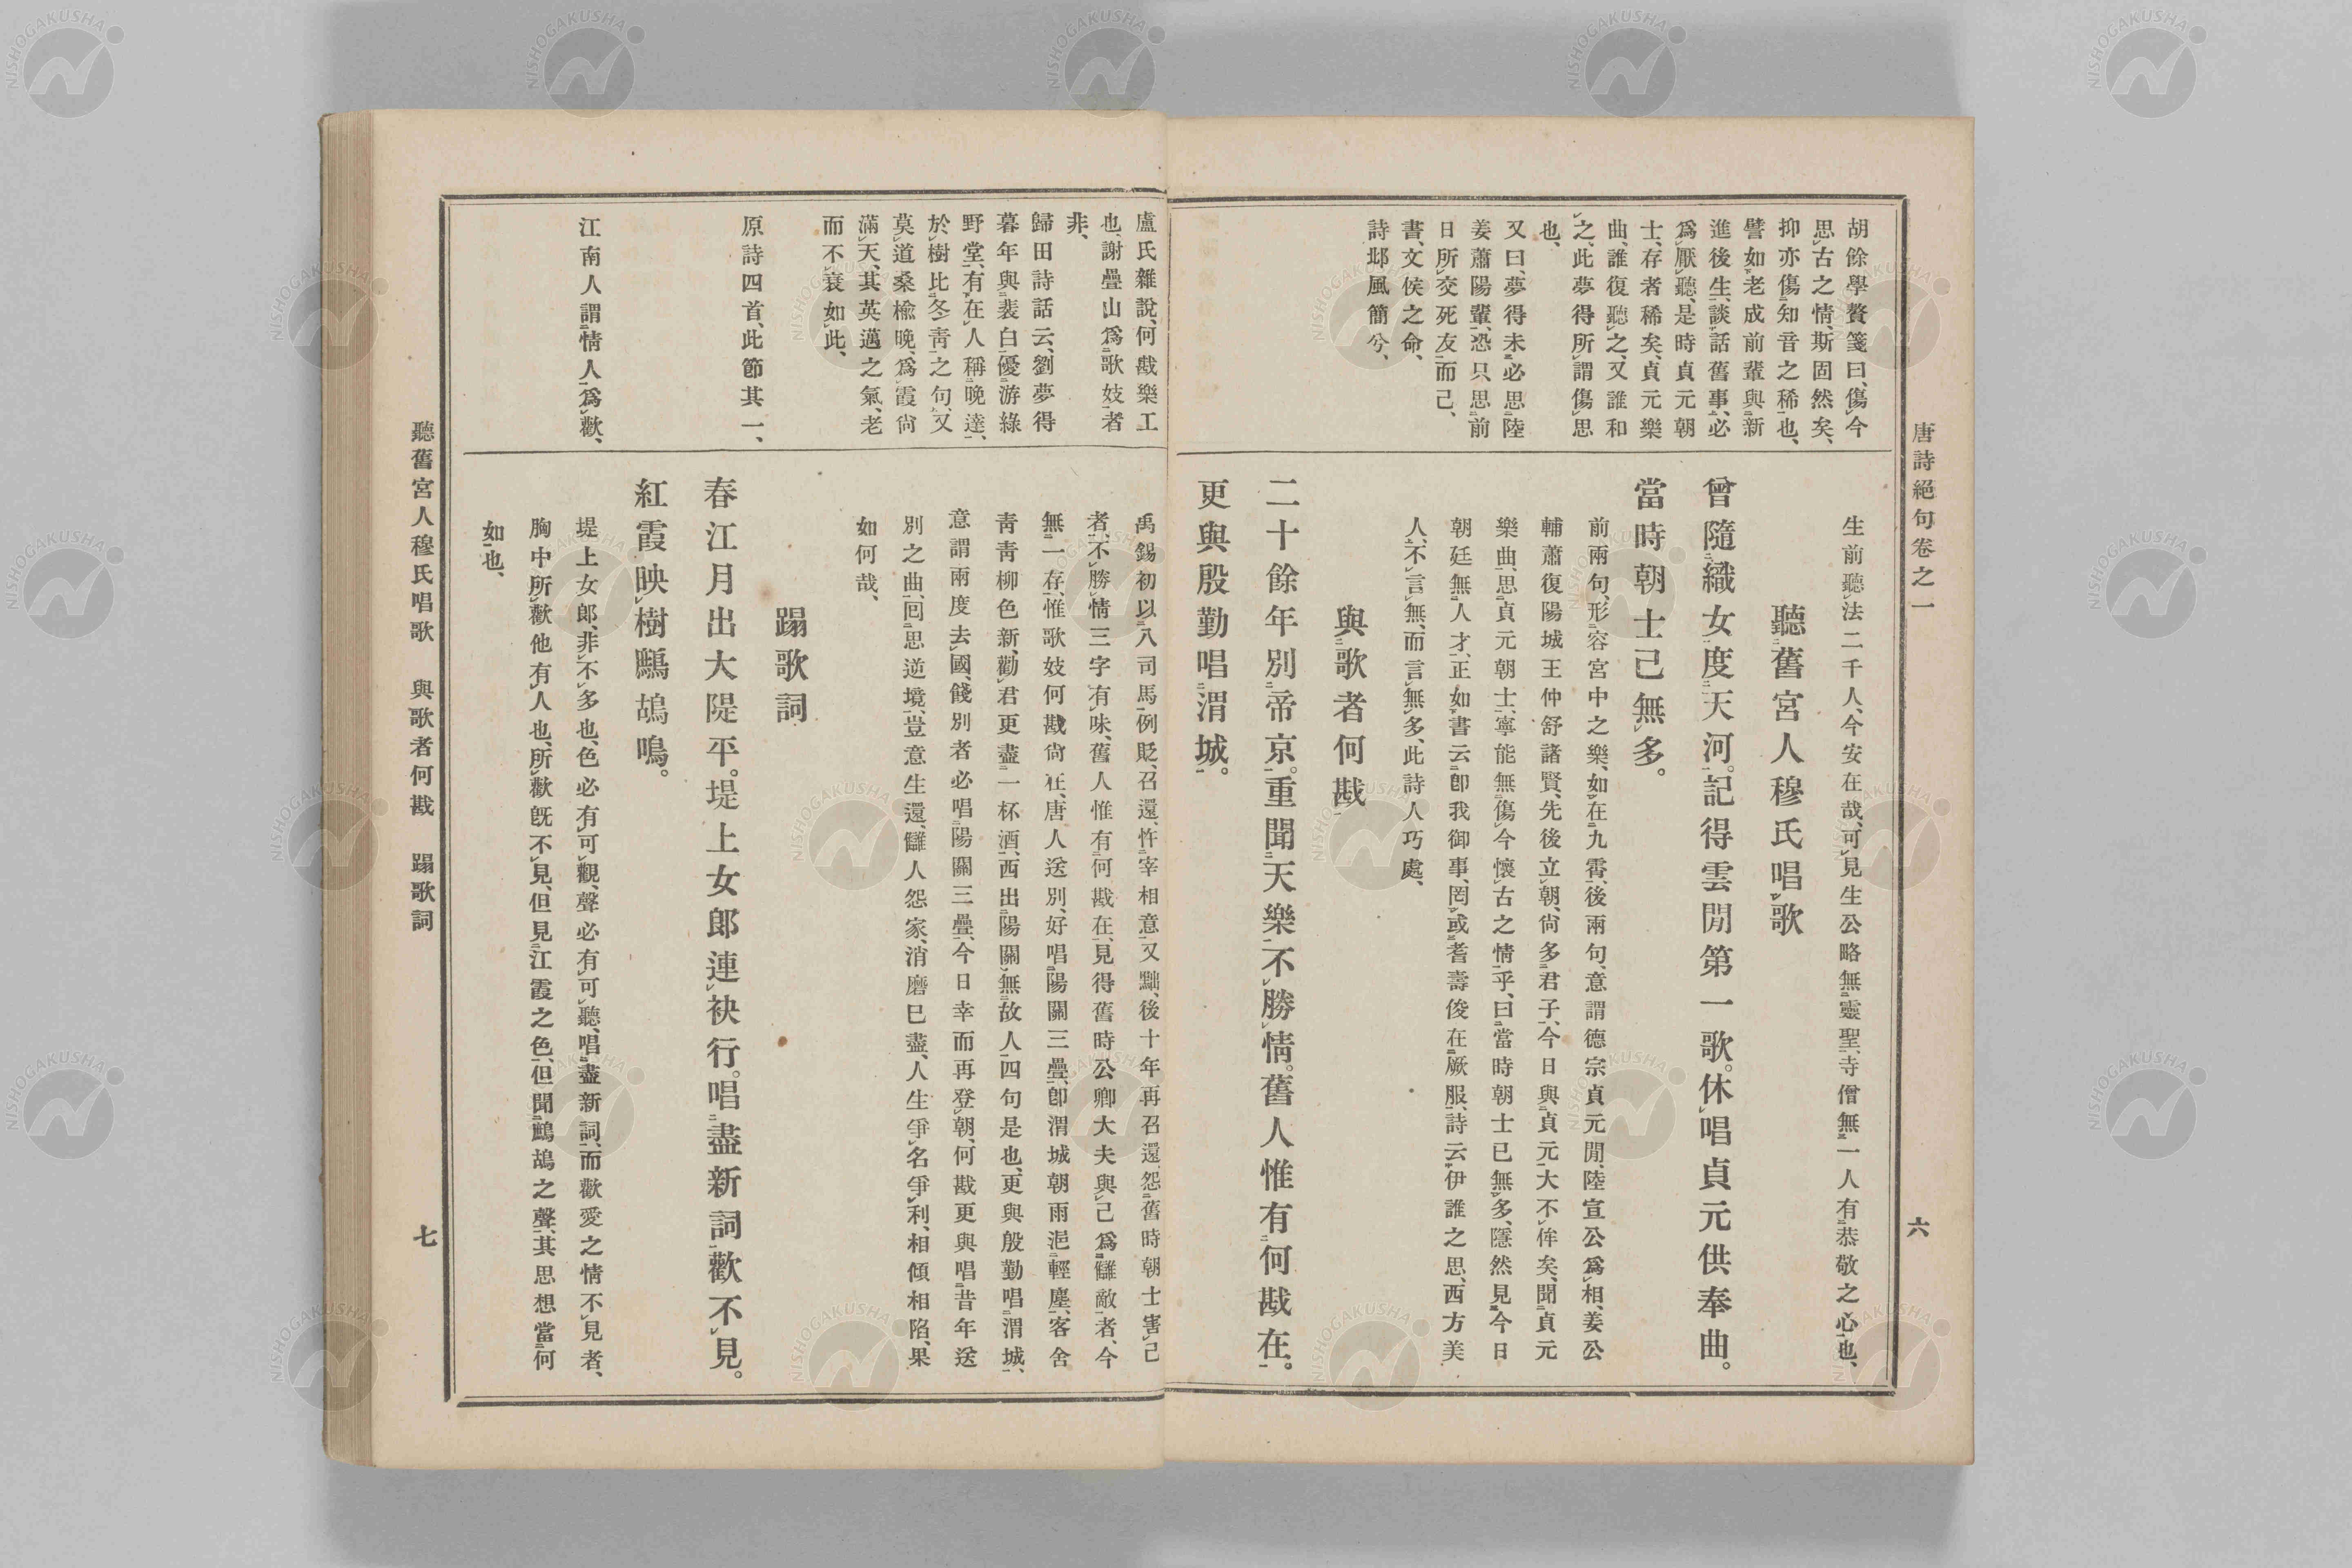 唐詩絕句卷之一
六
胡餘學贅箋曰、傷今
思古之情、斯固然矣、
抑亦傷知音之稀也、
譬如老成前輩與新
進後生、談話舊事、必
爲厭聽、是時貞元朝
士、存者稀矣、貞元樂
曲、誰復聽之、又誰和
之、此夢得所謂傷思
也、
又曰、夢得未必思陸
姜蕭陽輩、恐只思前
日所交死友而己、
書、文侯之命、
詩邶風簡兮、
生前聽法二千人、今安在哉、可見生公略無靈聖、寺僧無一人有恭敬之心也、
聽舊宮人穆氏唱歌
曾隨織女度天河。記得雲閒第一歌。休唱貞元供奉曲。
當時朝士己無多。
前兩句、形容宮中之樂、如在九霄、後兩句、意謂德宗貞元閒、陸宣公爲相、姜公
輔蕭復陽城王仲舒諸賢、先後立朝、尙多君子、今日與貞元大不侔矣、聞貞元
樂曲、思貞元朝士、寧能無傷今懷古之情乎、曰當時朝士已無多、隱然見今日
朝廷無人才、正如書云卽我御事、罔或耆壽俊在厥服、詩云伊誰之思、西方美
人、不言無、而言無多、此詩人巧處、
與歌者何戡
二十餘年別帝京。重聞天樂不勝情。舊人惟有何戡在。
更與殷勤唱渭城。
盧氏雜說、何戡樂工
也、謝疊山爲歌妓者
非、
歸田詩話云、劉夢得
暮年與裴白優游綠
野堂、有在人稱晚達、
於樹比冬青之句、又
莫道桑楡晚、爲霞尙
滿天、其英邁之氣、老
而不衰如此、
原詩四首、此節其一、
江南人謂情人爲歡、
禹錫初以八司馬例貶、召還、忤宰相意、又黜、後十年再召還、怨舊時朝士害己
者、不勝情三字有味、舊人惟有何戡在、見得舊時公卿大夫與己爲讎敵者、今
無一存、惟歌妓何戡尙在、唐人送別、好唱陽關三疊、卽渭城朝雨浥輕塵、客舍
靑靑柳色新、勸君更盡一杯酒、西出陽關無故人、四句是也、更與殷勤唱渭城、
意謂兩度去國、餞別者必唱陽關三疊、今日幸而再登朝、何戡更與唱昔年送
別之曲、回思逆境、豈意生還、讎人怨家、消磨已盡、人生爭名爭利、相傾相陷、果
如何哉、
蹋歌詞
春江月出大隄平。堤上女郎連袂行。唱盡新詞歡不見。
紅霞映樹鷓鴣鳴。
堤上女郎、非不多也、色必有可觀、聲必有可聽、唱盡新詞、而歡愛之情不見者、
胸中所歡他有人也、所歡旣不見、但見江霞之色、但聞鷓鴣之聲、其思想當何
如也、
聽舊宮人穆氏唱歌　與歌者何戡　蹋歌詞
七